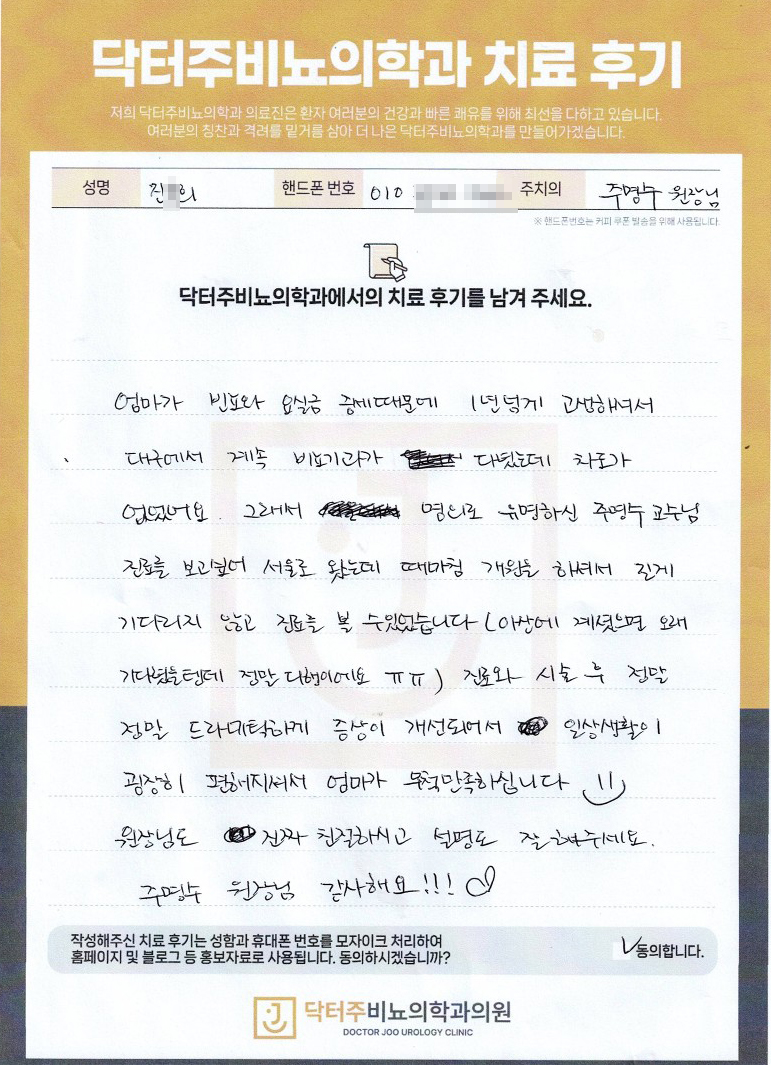 닥터주비뇨의학과 치료 후기
저희 닥터주비뇨의학과 의료진은 환자 여러분의 건강과 빠른 쾌유를 위해 최선을 다하고 있습니다.
여러분의 칭찬과 격려를 밑거름 삼아 더 나은 닥터주비뇨의학과를 만들어가겠습니다.
성명 진 희 핸드폰 번호 010 주치의 주명수 원장님
※ 핸드폰번호는 커피 쿠폰 발송을 위해 사용됩니다.
닥터주비뇨의학과에서의 치료 후기를 남겨 주세요.
엄마가 빈뇨와 요실금 증세때문에 1년넘게 고생하셔서
대구에서 계속 비뇨기과가 다녔는데 차도가
없었어요. 그래서 명의로 유명하신 주명수 교수님
진료를 보고싶어 서울로 왔는데 때마침 개원을 하셔서 길게
기다리지 않고 진료를 볼 수있었습니다 (아산에 계셨으면 오래
기다렸을텐데 정말 다행이에요 ㅠㅠ) 진료와 시술 후 정말
정말 드라마틱하게 증상이 개선되어서 일상생활이
굉장히 편해지셔서 엄마가 무척만족하십니다
원장님도 진짜 친절하시고 설명도 잘 해주세요.
주명수 원장님 감사해요!!! ♡
작성해주신 치료 후기는 성함과 휴대폰 번호를 모자이크 처리하여
홈페이지 및 블로그 등 홍보자료로 사용됩니다. 동의하시겠습니까? ✓동의합니다.
닥터주비뇨의학과의원
DOCTOR JOO UROLOGY CLINIC